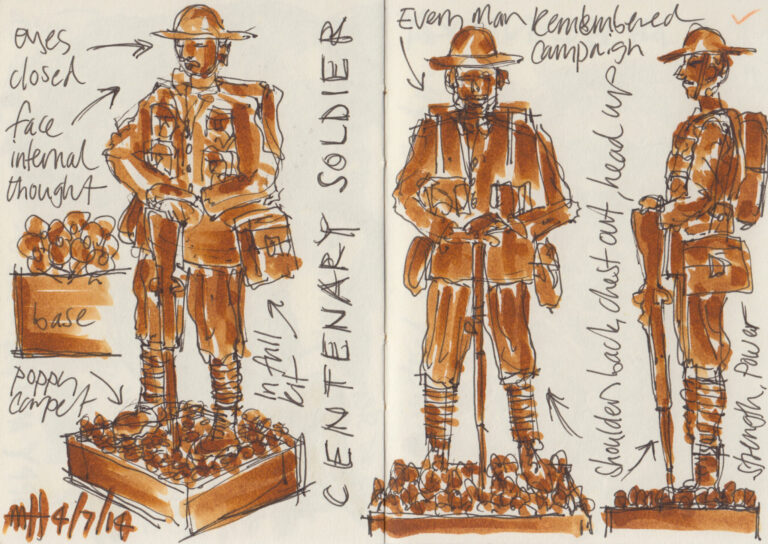 eyes
closed
face
internal
thought
base
poppy
carpet
in full
kit
CENTENARY SOLDIER
Every Man Remembered
campaign
shoulders back, chest out, head up
strength, power
MH 4/7/14